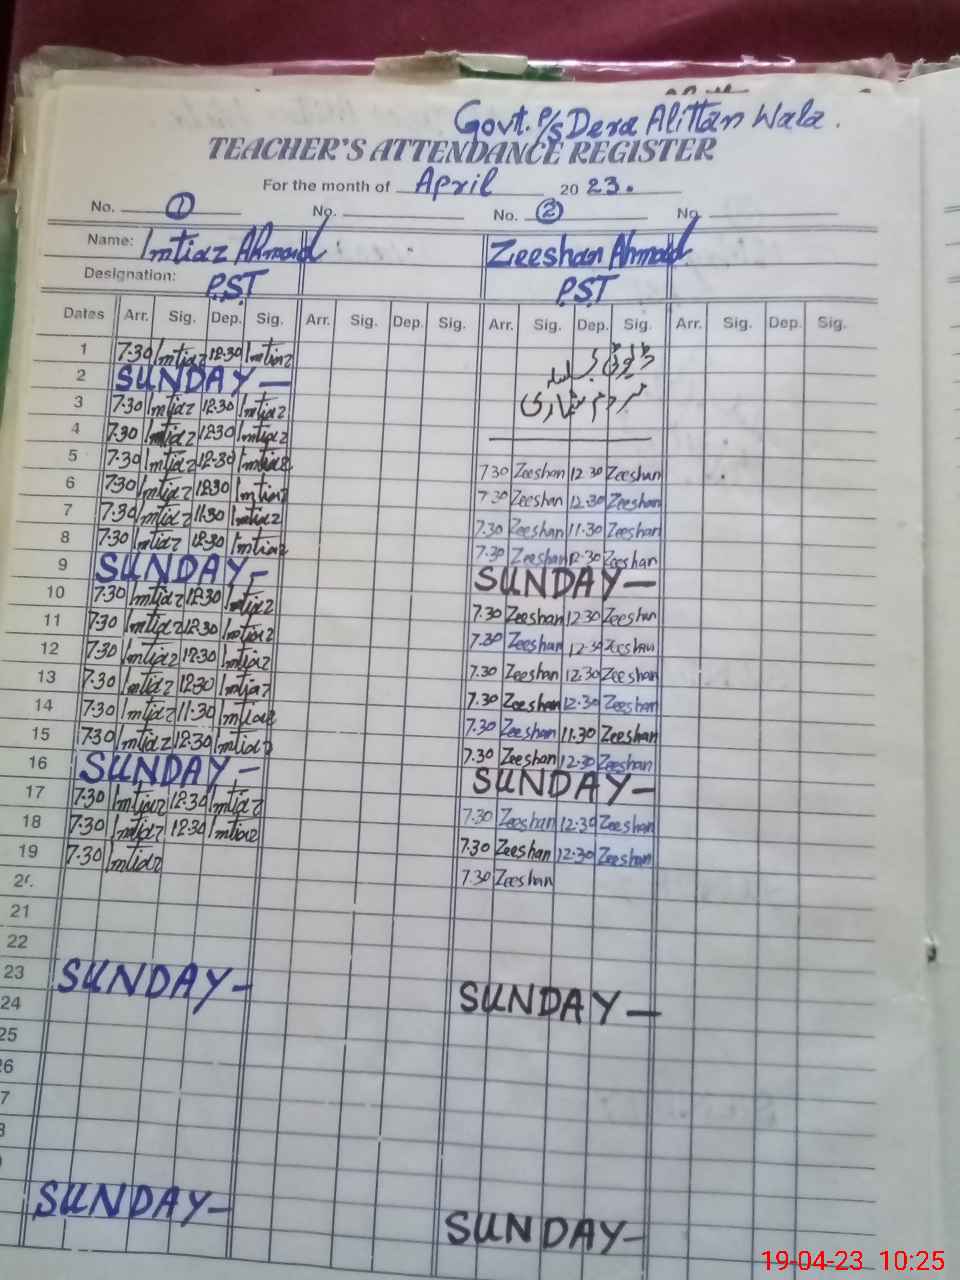 Govt. P/S Dera Alittan Wala.
TEACHER'S ATTENDANCE REGISTER
For the month of April 2023.
No. 1 No. No. 2 No.
Name: Imtiaz Ahmad Zeeshan Ahmad
Designation: P.S.T P.S.T
Dates Arr. Sig. Dep. Sig. Arr. Sig. Dep. Sig. Arr. Sig. Dep. Sig. Arr. Sig. Dep. Sig.
1 7:30 Imtiaz 12:30 Imtiaz ڈیوٹی بسلسلہ
2 SUNDAY — مردم شماری
3 7:30 Imtiaz 12:30 Imtiaz
4 7:30 Imtiaz 12:30 Imtiaz
5 7:30 Imtiaz 12:30 Imtiaz 7:30 Zeeshan 12:30 Zeeshan
6 7:30 Imtiaz 12:30 Imtiaz 7:30 Zeeshan 12:30 Zeeshan
7 7:30 Imtiaz 11:30 Imtiaz 7:30 Zeeshan 11:30 Zeeshan
8 7:30 Imtiaz 12:30 Imtiaz 7:30 Zeeshan 12:30 Zeeshan
9 SUNDAY — SUNDAY —
10 7:30 Imtiaz 12:30 Imtiaz 7:30 Zeeshan 12:30 Zeeshan
11 7:30 Imtiaz 12:30 Imtiaz 7:30 Zeeshan 12:30 Zeeshan
12 7:30 Imtiaz 12:30 Imtiaz 7:30 Zeeshan 12:30 Zeeshan
13 7:30 Imtiaz 12:30 Imtiaz 7:30 Zeeshan 12:30 Zeeshan
14 7:30 Imtiaz 11:30 Imtiaz 7:30 Zeeshan 11:30 Zeeshan
15 7:30 Imtiaz 12:30 Imtiaz 7:30 Zeeshan 12:30 Zeeshan
16 SUNDAY — SUNDAY —
17 7:30 Imtiaz 12:30 Imtiaz 7:30 Zeeshan 12:30 Zeeshan
18 7:30 Imtiaz 12:30 Imtiaz 7:30 Zeeshan 12:30 Zeeshan
19 7:30 Imtiaz 7:30 Zeeshan
21
22
23 SUNDAY — SUNDAY —
24
25
SUNDAY — SUNDAY —
19-04-23 10:25